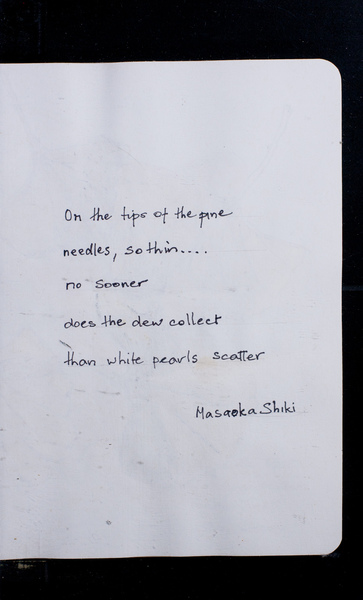 On the tips of the pine
needles, so thin....
no sooner
does the dew collect
than white pearls scatter
Masaoka Shiki